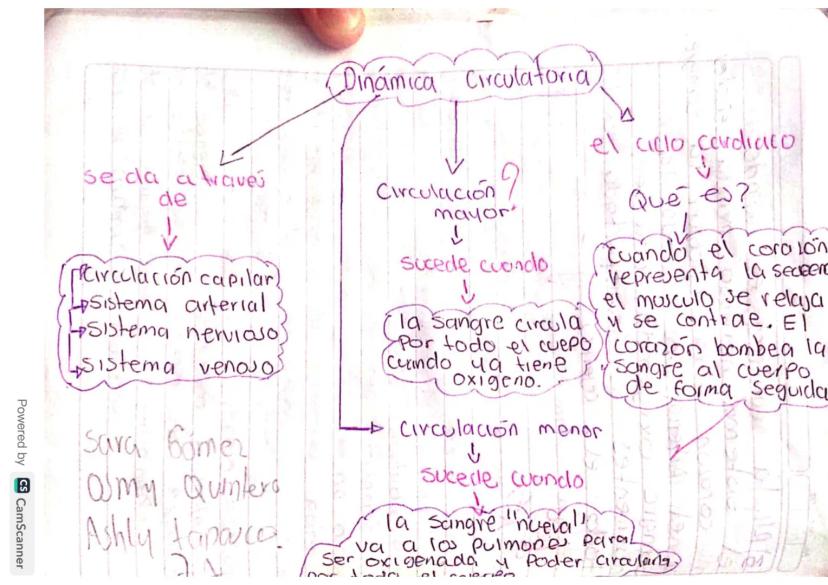 Dinámica Circulatoria
se da a través
de
Circulación capilar
Sistema arterial
Sistema nervioso
Sistema venoso
Circulación
mayor
sucede cuando
la sangre circula
Por todo el cuepo
cuando ya tiene
oxigeno.
el ciclo cardiaco
Qué es?
Cuando el corazón
representa la
el musculo se relaja
y se contrae. El
corazón bombea la
sangre al cuerpo
de forma seguida
Circulación menor
sucede cuando
la sangre "nueva"
va a los pulmones para
Ser oxigenada y Poder circularla
por todo el
Sara Gómez
Osmy Quintero
Ashly
Powered by CS CamScanner